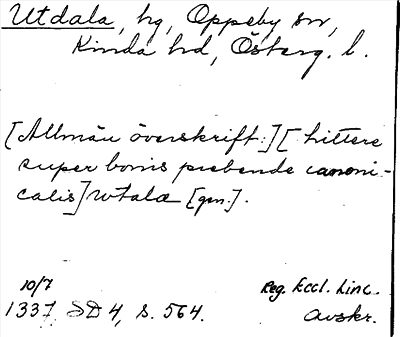 Utdala, hg, Oppeby sn,
Kinda hd, Österg. l.
[Allmän överskrift:] [littere
super bonis prebende canoni-
calis] wtalæ [gen.].
10/7 Reg. Eccl. Linc.
1337 SD 4, s. 564. Avskr.